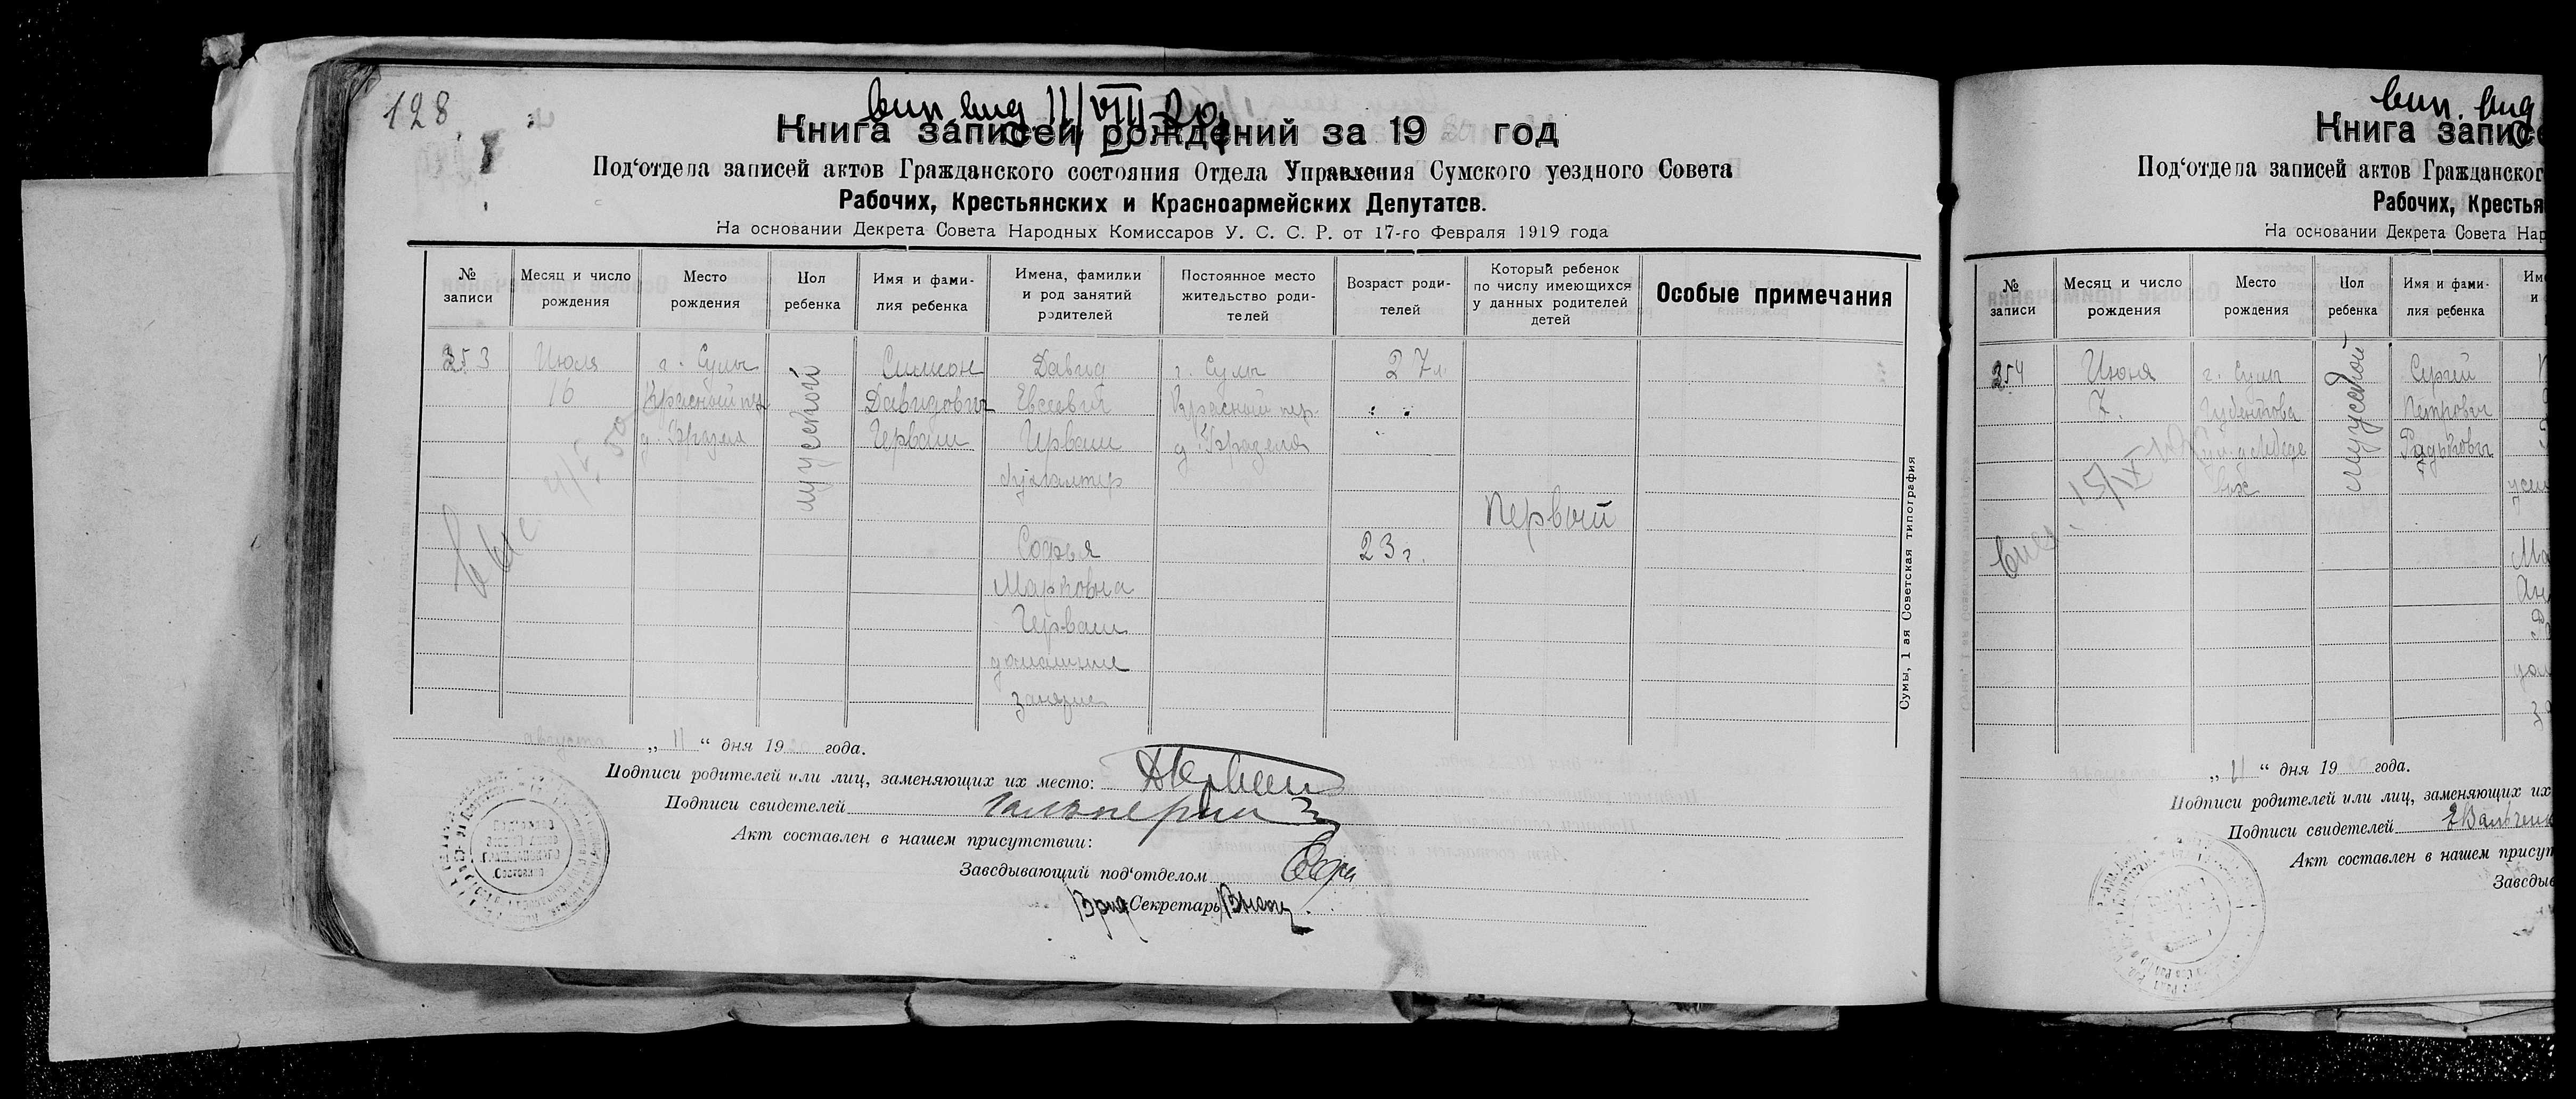 128
вип. вид 11/VIII-20
Книга записей рождений за 19 год
Под‘отдела записей актов Гражданского состояния Отдела Управления Сумского уездного Совета
Рабочих, Крестьянских и Красноармейских Депутатов.
На основании Декрета Совета Народных Комиссаров У. С. С. Р. от 17-го Февраля 1919 года
№ записи
Месяц и число рождения
Место рождения
Пол ребенка
Имя и фамилия ребенка
Имена, фамилии и род занятий родителей
Постоянное место жительство родителей
Возраст родителей
Который ребенок по числу имеющихся у данных родителей детей
Особые примечания
353
Июля
16
г. Сумы
Красный пер.
мужской
Симон
Давидович
Герваш
Давид
Евсеевич
Герваш
бухгалтер
Софья
Марковна
Герваш
домашние
занятие
г. Сумы
Красный пер.
27 л.
23 г.
Первый
Сумы, 1 ая Советская типография
„ 11 “ дня 19 года.
Подписи родителей или лиц, заменяющих их место:
Подписи свидетелей Гальперин
Акт составлен в нашем присутствии:
Заведывающий под‘отделом
Врид Секретарь
вип. вид
Книга записе
Под‘отдела записей актов Гражданског
Рабочих, Крестья
На основании Декрета Совета Нар
№ записи
Месяц и число рождения
Место рождения
Пол ребенка
Имя и фамилия ребенка
354
Июня
7.
г. Сумы
мужской
Сергей
Петрович
„ 11 “ дня 19 года.
Подписи родителей или лиц, заменяющих их
Подписи свидетелей
Акт составлен в нашем присут
Заведыв